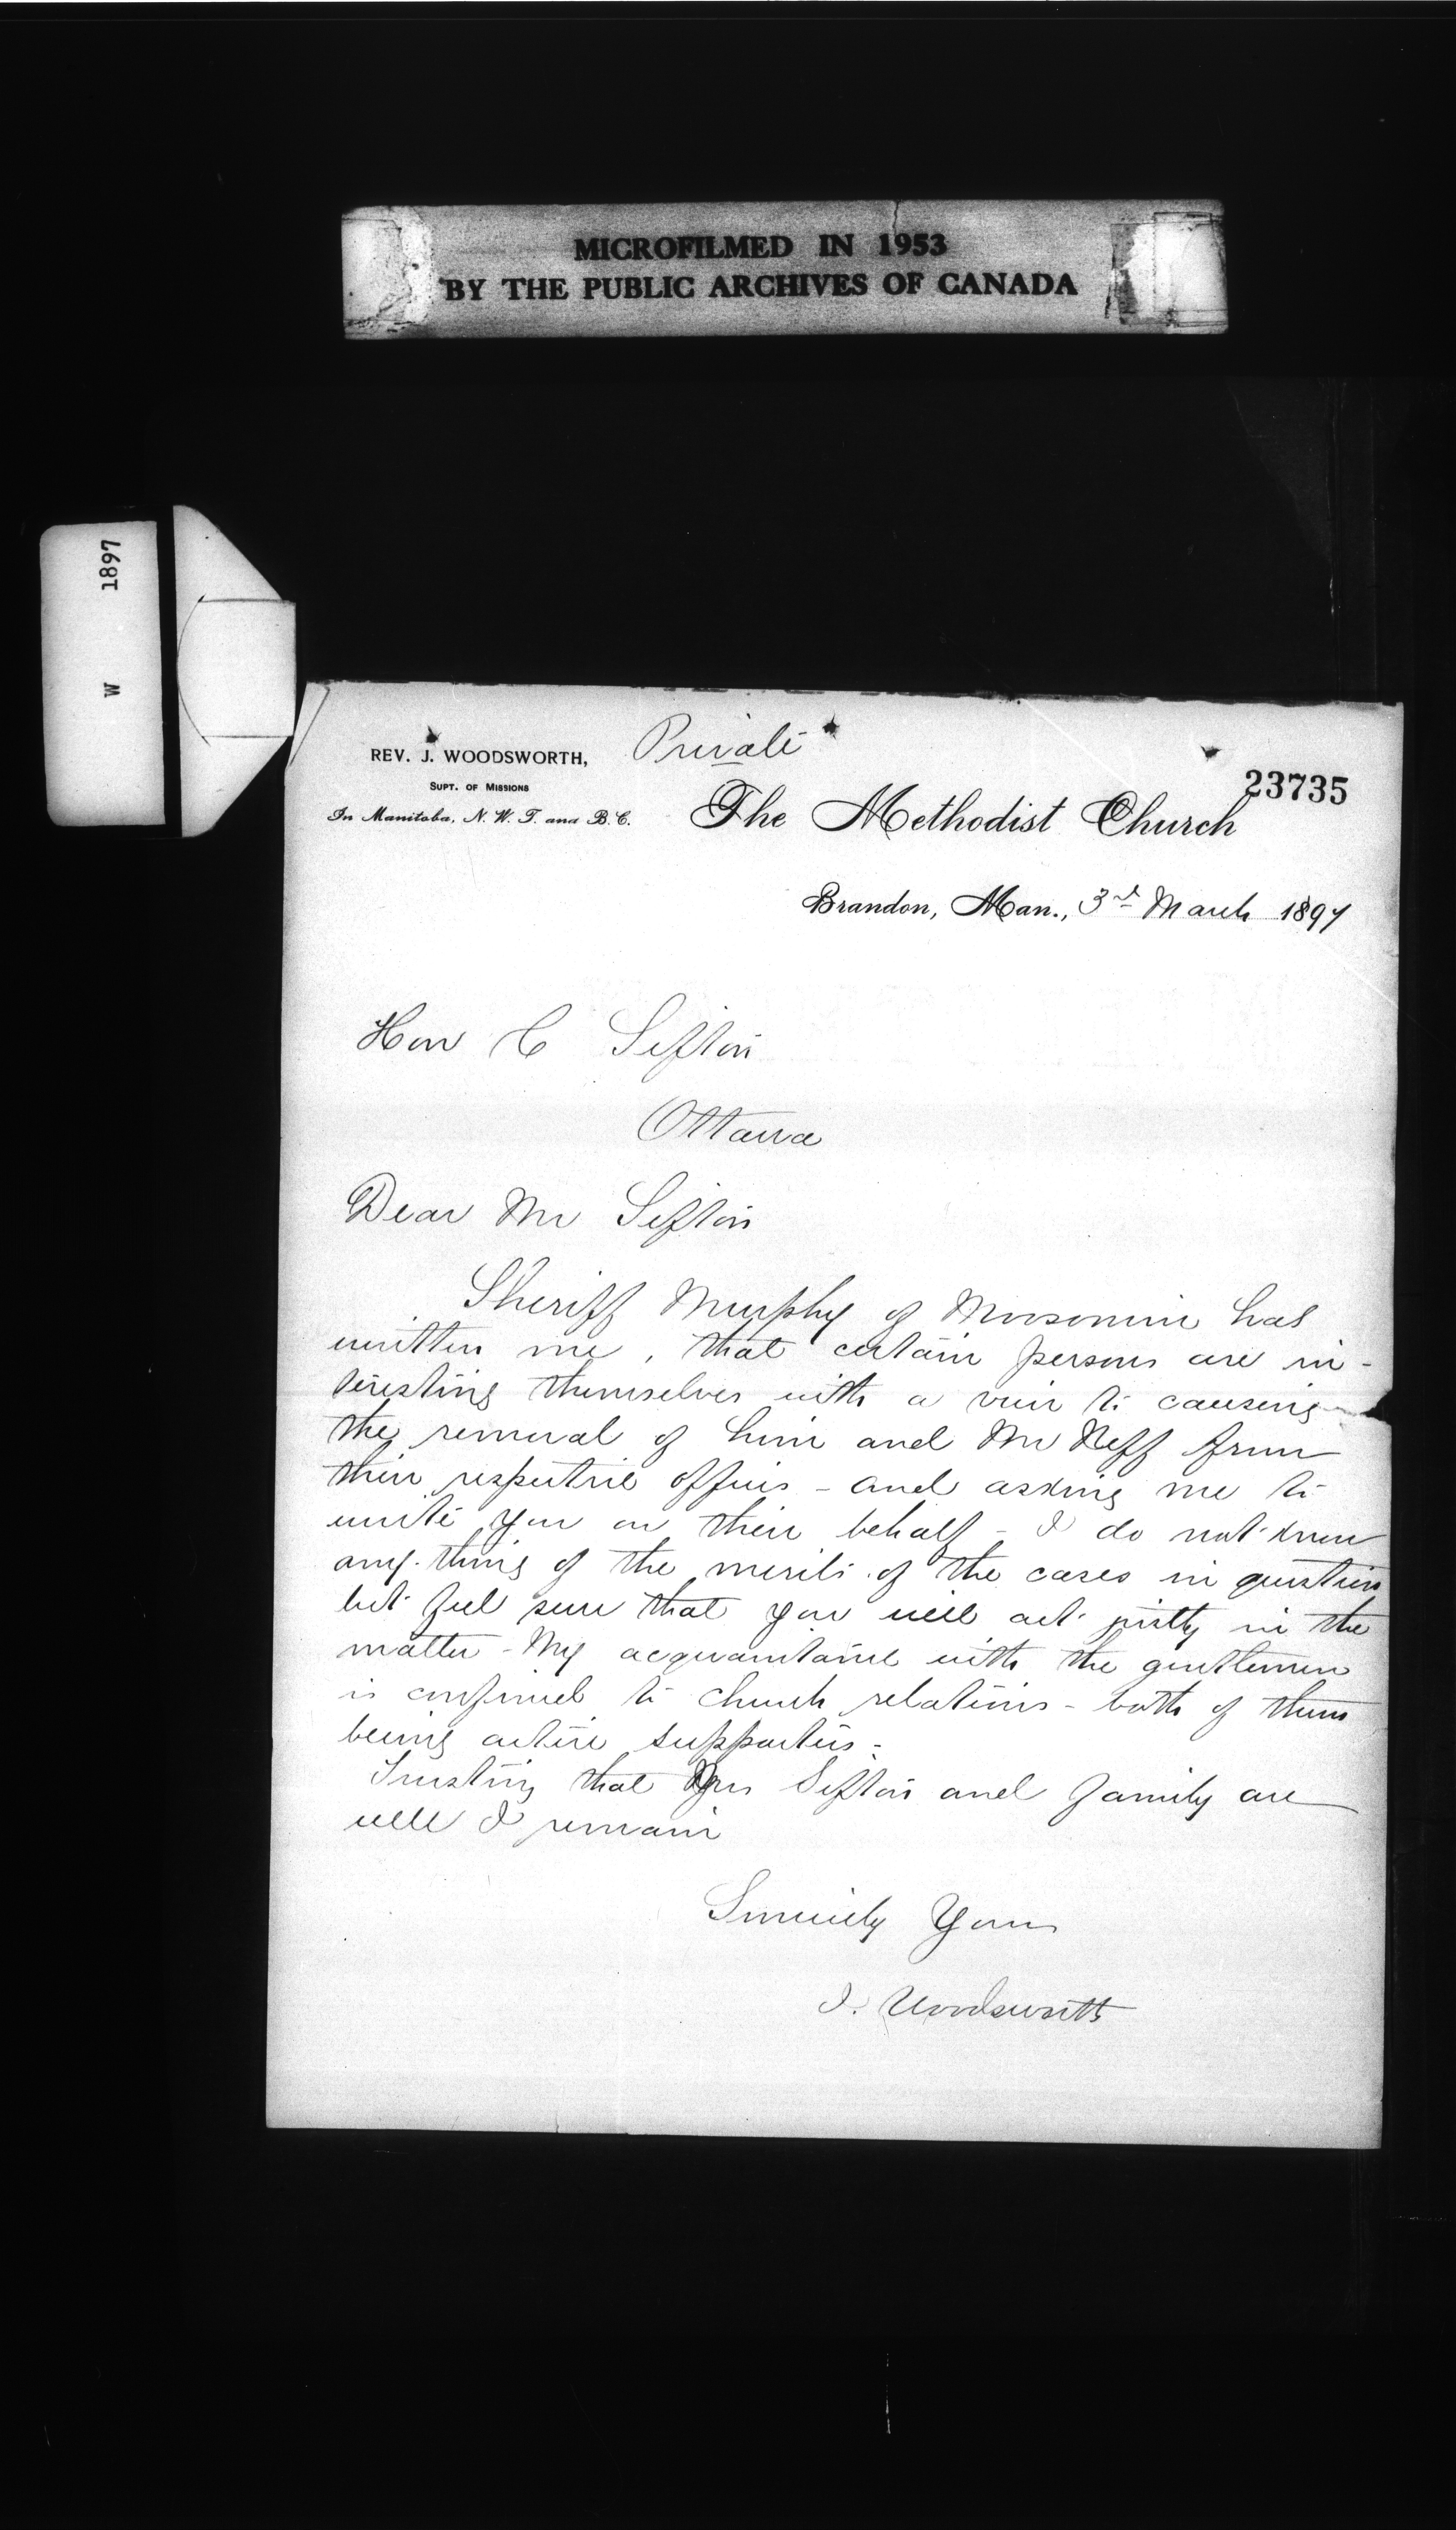 MICROFILMED IN 1953
BY THE PUBLIC ARCHIVES OF CANADA
W 1897
Private
REV. J. WOODSWORTH,
SUPT. OF MISSIONS
In Manitoba, N. W. T. and B. C.
23735
The Methodist Church
Brandon, Man., 3rd March 1897
Hon C Sifton
Ottawa
Dear Mr Sifton
Sheriff Murphy of Moosomin has
written me, that certain persons are in-
teresting themselves with a view to causing
the removal of him and Mr Neff from
their respective offices - and asking me to
write you on their behalf - I do not know
any thing of the merits of the cases in question
but feel sure that you will act justly in the
matter - My acquaintance with the gentlemen
is confined to church relations - both of them
being active supporters -
Trusting that Mrs Sifton and family are
well I remain
Sincerely Yours
J. Woodsworth